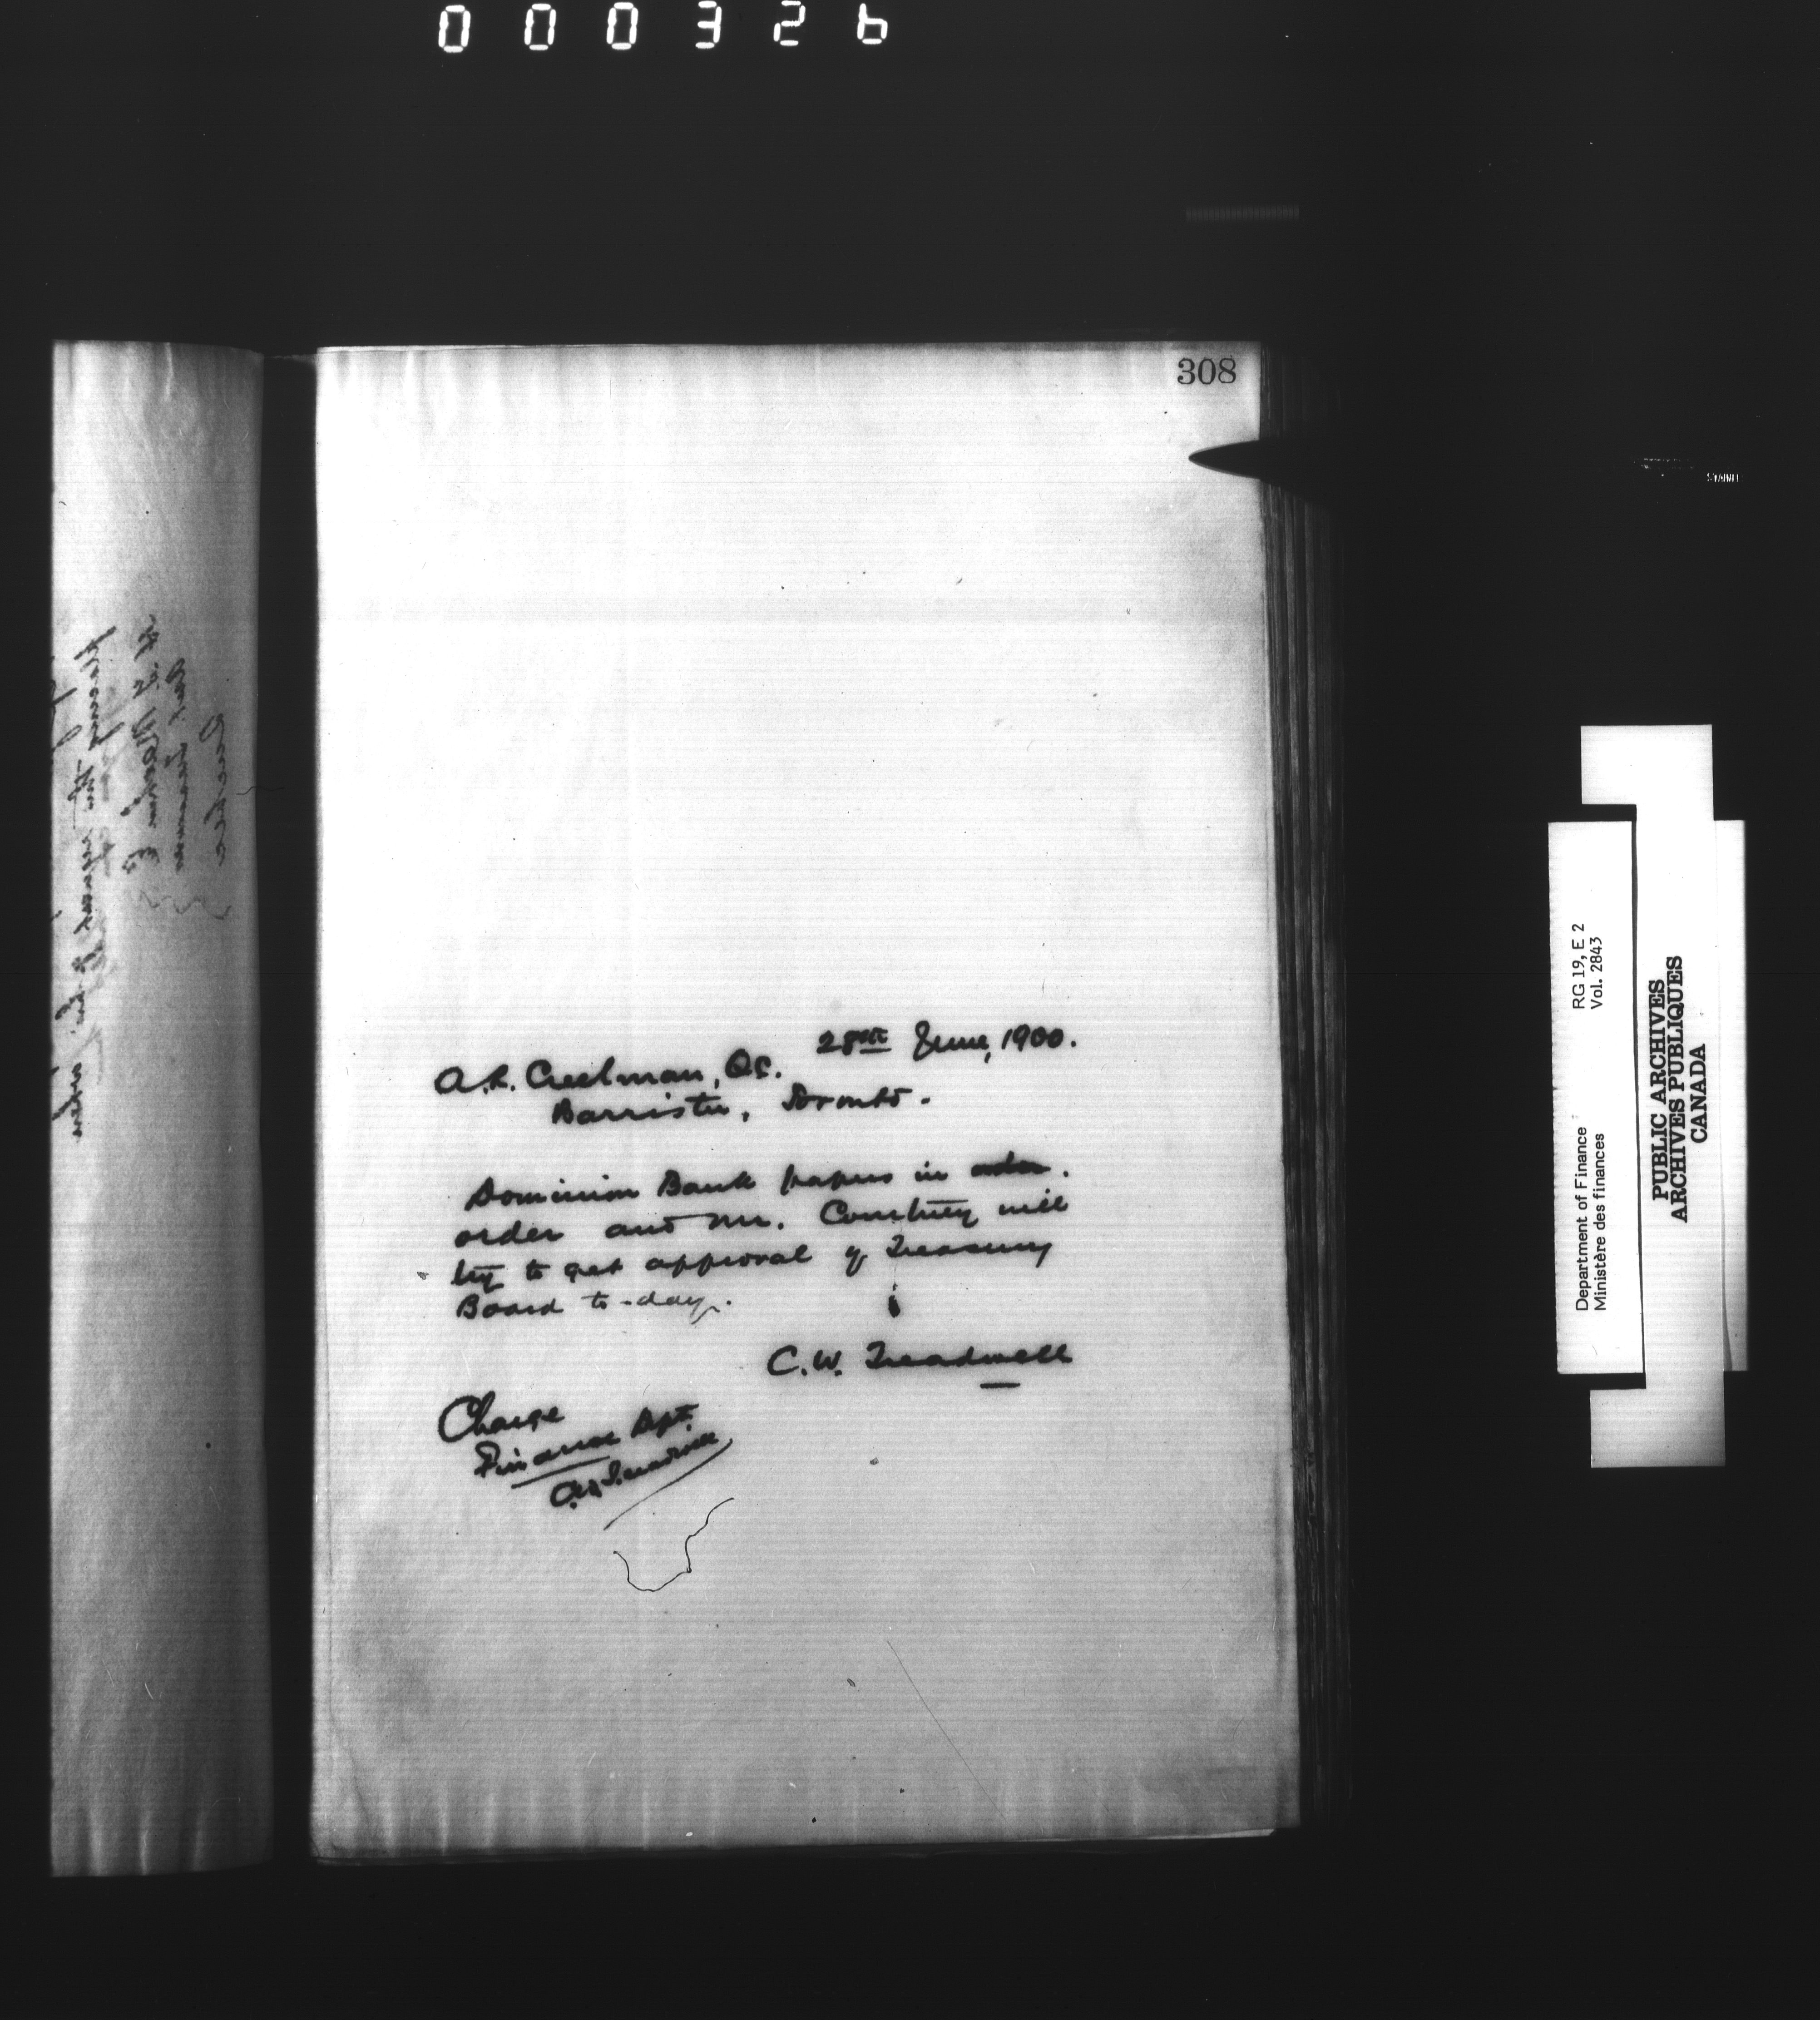 000326
308
28th June, 1900.
A.R. Creelman, Q.C.
Barrister, Toronto.
Dominion Bank papers in order.
order and Mr. Courtney will
try to get approval of Treasury
Board to-day.
C.W. Treadwell
Charge
Finance Dept.
C.W. Treadwell
Department of Finance RG 19, E 2
Ministère des finances Vol. 2843
PUBLIC ARCHIVES
ARCHIVES PUBLIQUES
CANADA